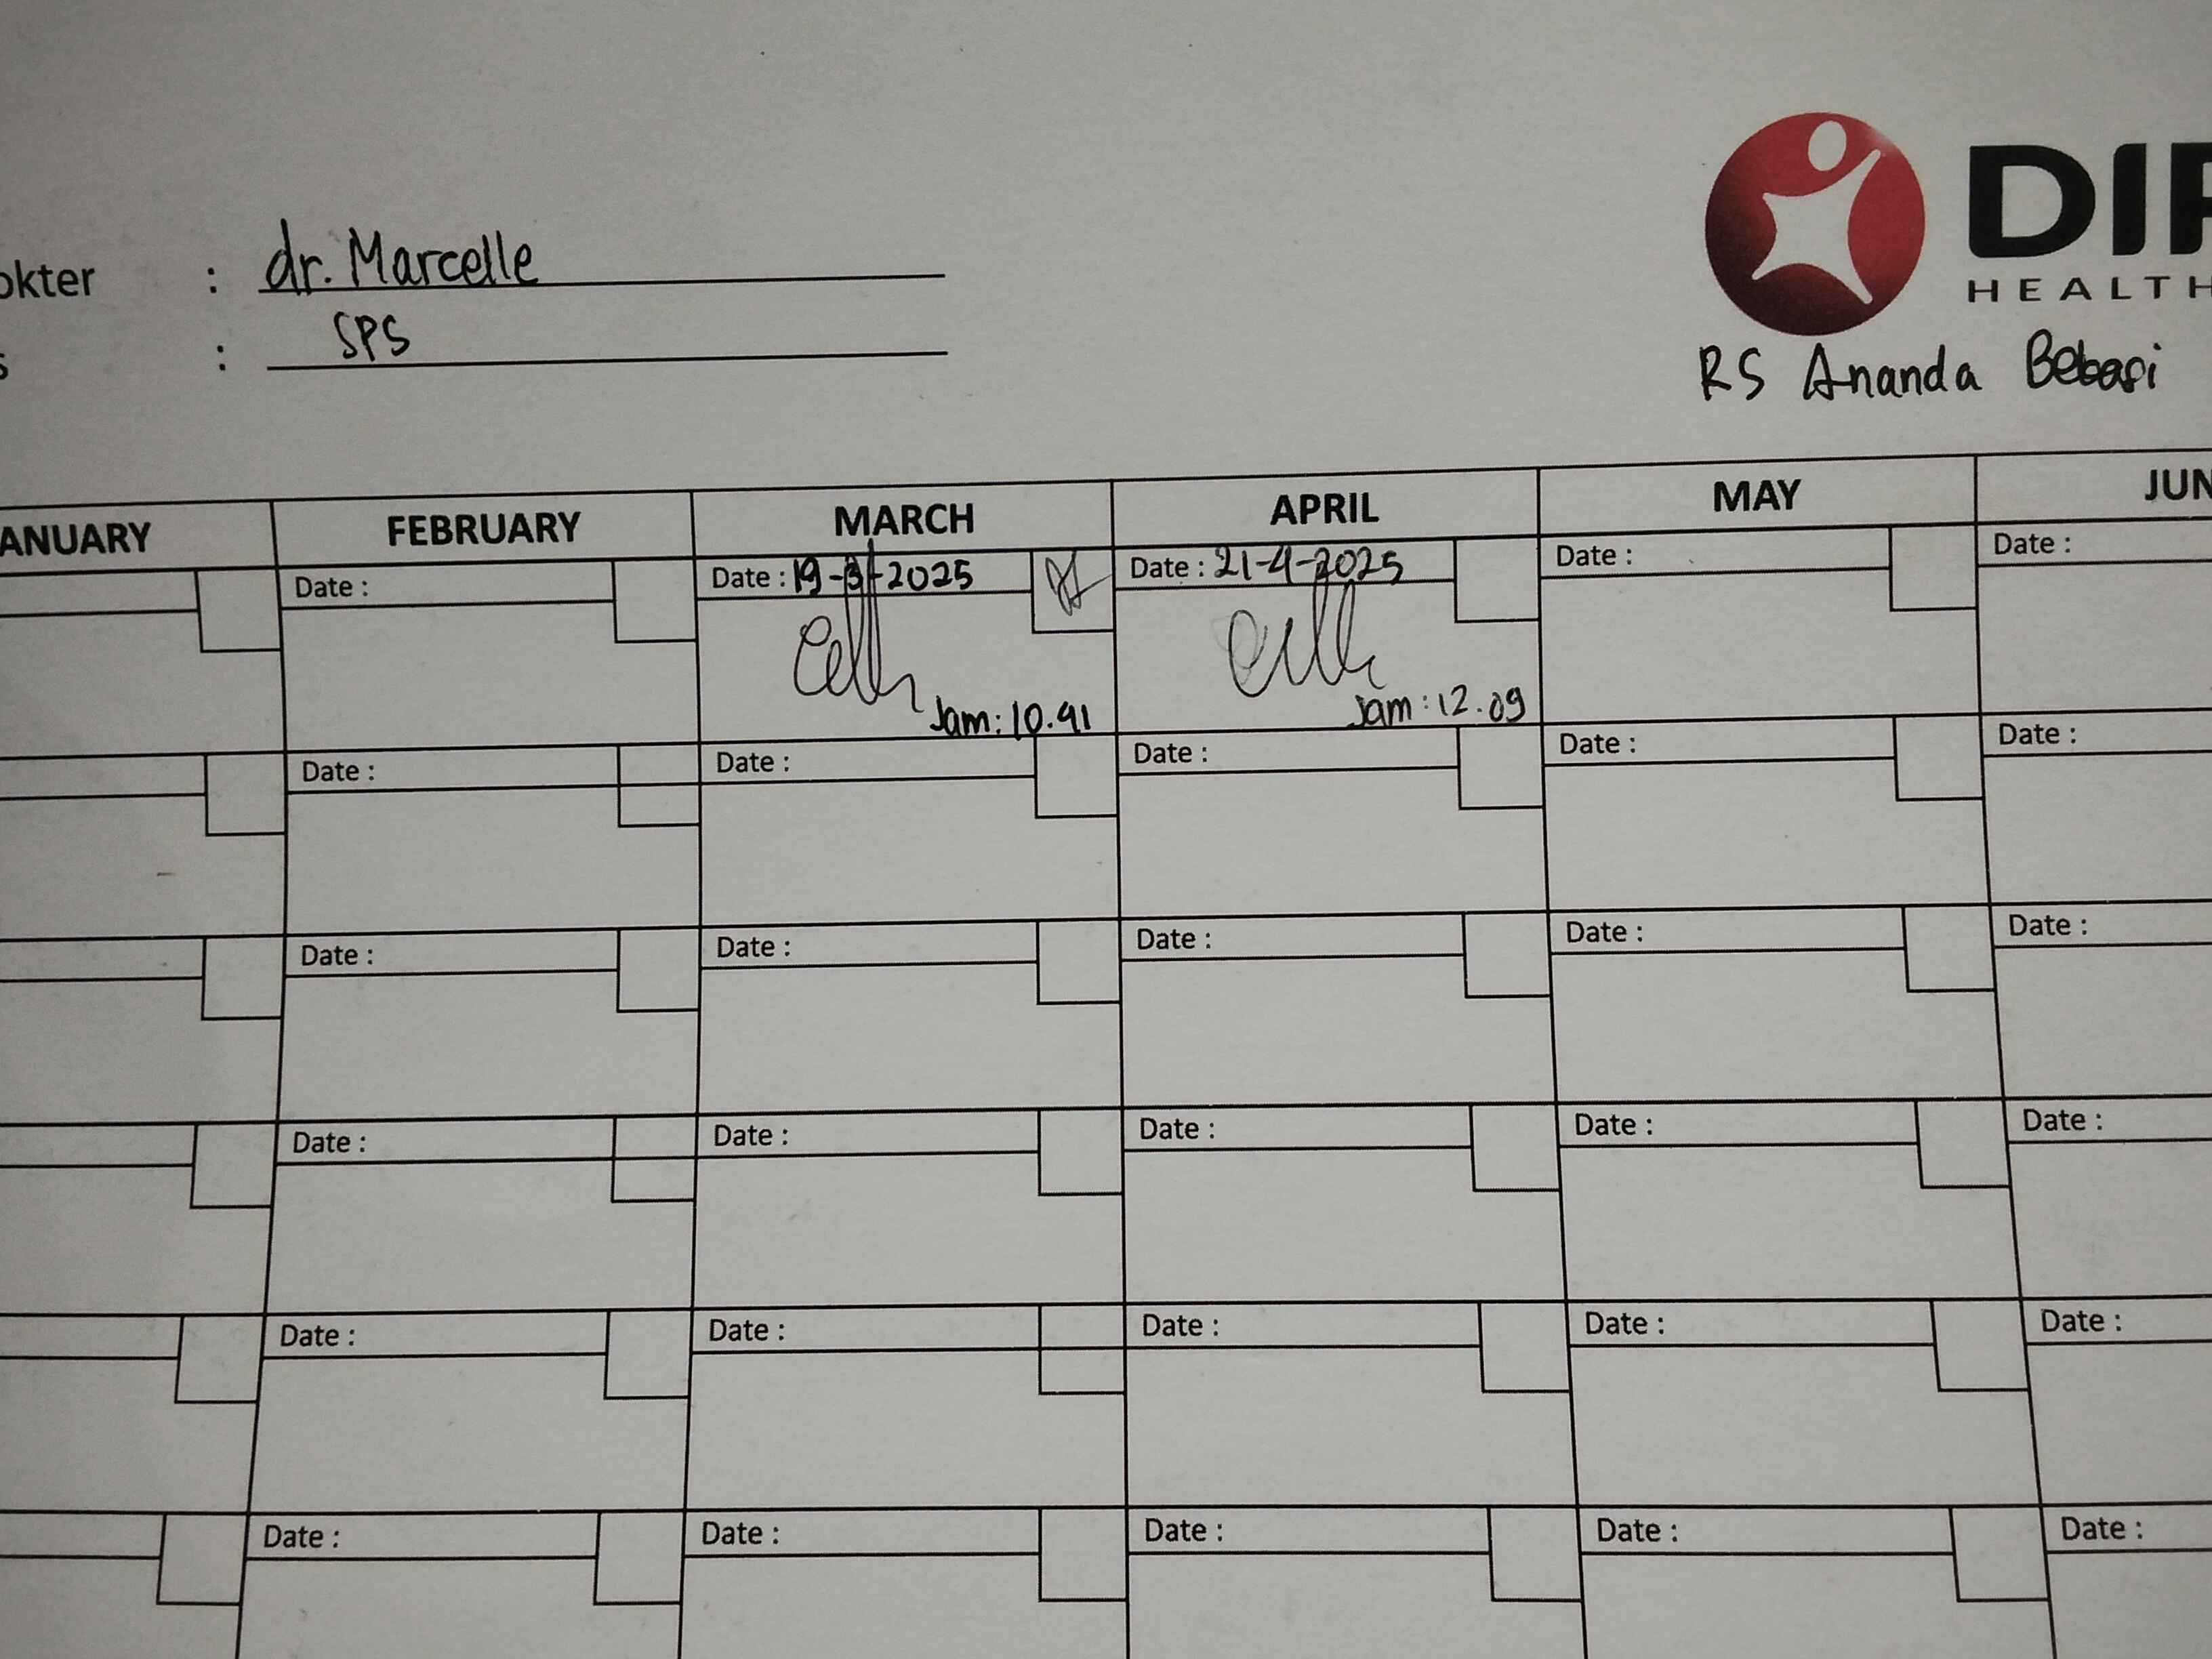 okter : dr. Marcelle
s : SPS
DIF
HEALTH
RS Ananda Bekasi
ANUARY FEBRUARY MARCH APRIL MAY JUN
Date : Date : 19-3-2025 Date : 21-4-2025 Date : Date :
Jam: 10.41 Jam: 12.09
Date : Date : Date : Date : Date :
Date : Date : Date : Date : Date :
Date : Date : Date : Date : Date :
Date : Date : Date : Date : Date :
Date : Date : Date : Date : Date :